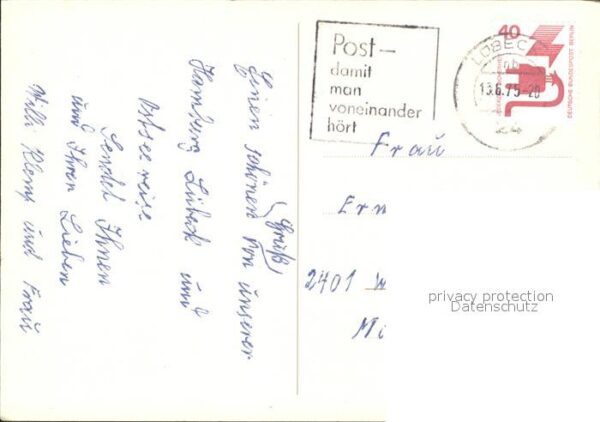 Einen schönen Gruß von unserer
Hamburg Lübeck und
Ostseereise
Sendet Ihnen
und Ihren Lieben
Willi Klemp und Frau
Post –
damit
man
voneinander
hört
LÜBECK
13.6.75-20
24
40
DEUTSCHE BUNDESPOST BERLIN
Frau
2401
privacy protection
Datenschutz